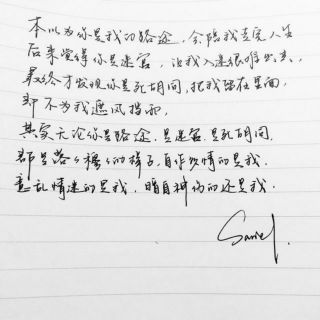 本以为你是我的路途，会陪我走完人生
后来觉得你是迷宫，让我入迷很难出来，
最终才发现你是死胡同，把我堵在里面，
却不为我遮风挡雨，
其实无论你是路途，是迷宫，是死胡同，
都是的样子，自作多情的是我，
意乱情迷的是我，暗自神伤的还是我．